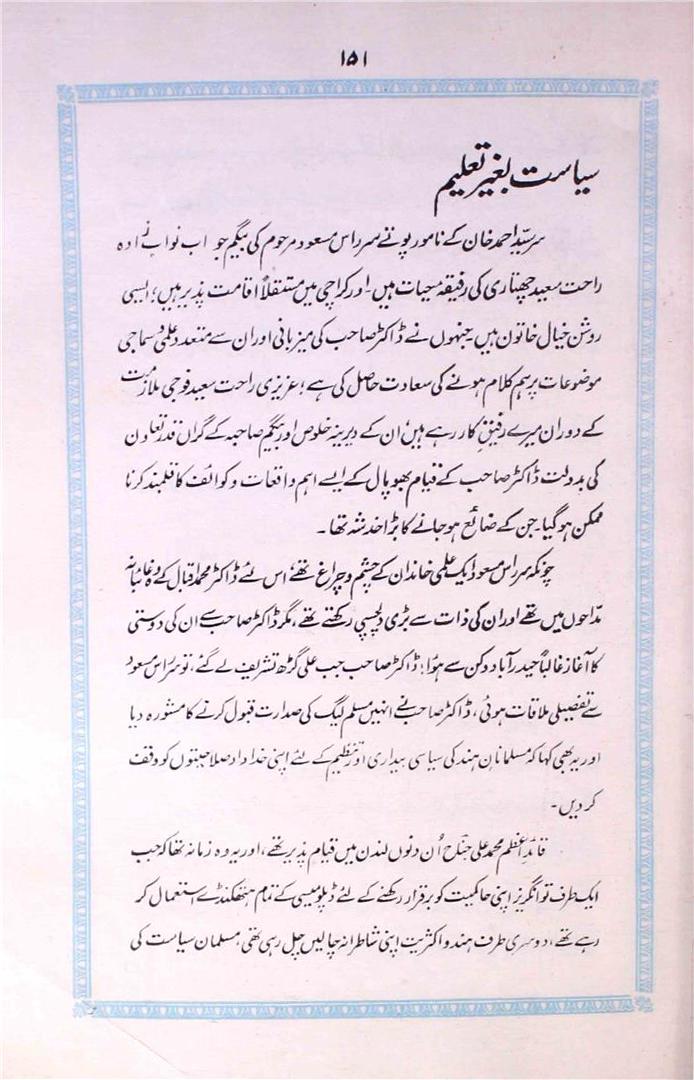 ۱۵۱
سیاست بغیر تعلیم
سرسیّد احمد خان کے نامور پوتے سر راس مسعود مرحوم کی بیگم جو اب نواب زادہ
راحت سعید چھتاری کی رفیقۂ حیات ہیں۔ اور کراچی میں مستقلاً اقامت پذیر ہیں؛ ایسی
روشن خیال خاتون ہیں۔ جنہوں نے ڈاکٹر صاحب کی میزبانی اور ان سے متعدد علمی و سماجی
موضوعات پر ہم کلام ہونے کی سعادت حاصل کی ہے؛ عزیزی راحت سعید فوجی ملازمت
کے دوران میرے رفیقِ کار رہے ہیں؛ ان کے دیرینہ خلوص اور بیگم صاحبہ کے گراں قدر تعاون
کی بدولت ڈاکٹر صاحب کے قیام بھوپال کے ایسے اہم واقعات و کوائف کا قلمبند کرنا
ممکن ہو گیا۔ جن کے ضائع ہو جانے کا بڑا خدشہ تھا۔
چونکہ سر راس مسعود ایک علمی خاندان کے چشم و چراغ تھے؛ اس لئے ڈاکٹر محمد اقبال کے وہ غائبانہ
مدّاحوں میں تھے اور ان کی ذات سے بڑی دلچسپی رکھتے تھے، مگر ڈاکٹر صاحب سے ان کی دوستی
کا آغاز غالباً حیدر آباد دکن سے ہوا؛ ڈاکٹر صاحب جب علی گڑھ تشریف لے گئے، تو سر راس مسعود
سے تفصیلی ملاقات ہوئی، ڈاکٹر صاحب نے انہیں مسلم لیگ کی صدارت قبول کرنے کا مشورہ دیا
اور یہ بھی کہا کہ مسلمانانِ ہند کی سیاسی بیداری اور تنظیم کے لئے اپنی خداداد صلاحیتوں کو وقف
کر دیں۔
قائد اعظم محمد علی جناح اُن دنوں لندن میں قیام پذیر تھے، اور یہ وہ زمانہ تھا کہ جب
ایک طرف تو انگریز اپنی حاکمیت کو برقرار رکھنے کے لئے ڈپلومیسی کے تمام ہتھکنڈے استعمال کر
رہے تھے، دوسری طرف ہندو اکثریت اپنی شاطرانہ چالیں چل رہی تھی، مسلمان سیاست کی